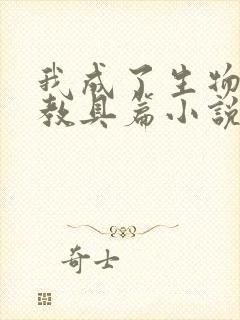 我成了生物
教具篇小說
奇士